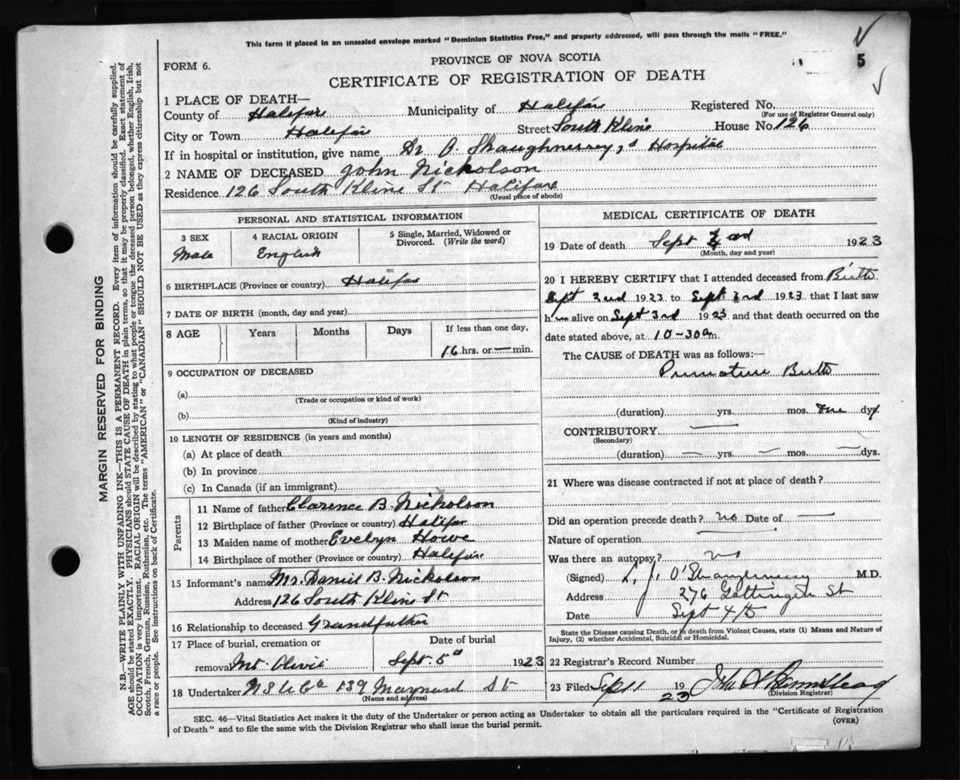 This form if placed in an unsealed envelope marked "Dominion Statistics Free," and properly addressed, will pass through the mails "FREE."
FORM 6.
PROVINCE OF NOVA SCOTIA
CERTIFICATE OF REGISTRATION OF DEATH
5
1 PLACE OF DEATH—
County of Halifax Municipality of Halifax Registered No.
(For use of Registrar General only)
City or Town Halifax Street South Kline House No. 126
If in hospital or institution, give name Dr O Shaughnessy's Hospital
2 NAME OF DECEASED John Nickolson
Residence 126 South Kline St Halifax
(Usual place of abode)
PERSONAL AND STATISTICAL INFORMATION
3 SEX 4 RACIAL ORIGIN 5 Single, Married, Widowed or Divorced. (Write the word)
Male English
6 BIRTHPLACE (Province or country) Halifax
7 DATE OF BIRTH (month, day and year)
8 AGE Years Months Days If less than one day,
16 hrs. or — min.
9 OCCUPATION OF DECEASED
(a)
(Trade or occupation or kind of work)
(b)
(Kind of industry)
10 LENGTH OF RESIDENCE (in years and months)
(a) At place of death
(b) In province
(c) In Canada (if an immigrant)
Parents
11 Name of father Clarence B. Nickolson
12 Birthplace of father (Province or country) Halifax
13 Maiden name of mother Evelyn Howe
14 Birthplace of mother (Province or country) Halifax
15 Informant's name Mr. Daniel B. Nickolson
Address 126 South Kline St
16 Relationship to deceased Grandfather
17 Place of burial, cremation or Date of burial
removal Mt Olivet Sept. 5th 1923
18 Undertaker N S U Co 139 Maynard St
(Name and address)
MEDICAL CERTIFICATE OF DEATH
19 Date of death Sept 3rd 1923
(Month, day and year)
20 I HEREBY CERTIFY that I attended deceased from Birth
Sept 2nd 1923 to Sept 3rd 1923 that I last saw
him alive on Sept 3rd 1923 and that death occurred on
date stated above, at 10-30 am.
The CAUSE OF DEATH was as follows:—
Premature Birth
(duration) yrs. mos. one dys
CONTRIBUTORY —
(Secondary)
(duration) — yrs. — mos. — dys.
21 Where was disease contracted if not at place of death?
Did an operation precede death? no Date of —
Nature of operation —
Was there an autopsy? no
(Signed) O'Shaughnessy M.D.
Address 276 Gottingen St
Date Sept 4th
State the Disease causing Death, or in death from Violent Causes, state (1) Means and Nature of Injury, (2) whether Accidental, Suicidal or Homicidal.
22 Registrar's Record Number
23 Filed Sep 11 1923 John
(Division Registrar)
SEC. 46—Vital Statistics Act makes it the duty of the Undertaker or person acting as Undertaker to obtain all the particulars required in the "Certificate of Registration
of Death" and to file the same with the Division Registrar who shall issue the burial permit.
(OVER)
MARGIN RESERVED FOR BINDING
N.B.—WRITE PLAINLY WITH UNFADING INK—THIS IS A PERMANENT RECORD. Every item of information should be carefully supplied.
AGE should be stated EXACTLY. PHYSICIANS should STATE CAUSE OF DEATH in plain terms, so that it may be properly classified. Exact statement of
OCCUPATION is very important. RACIAL ORIGIN will be described by stating to what people or tongue the deceased person belonged, whether English, Irish,
Scotch, French, German, Russian, Ruthenian, etc. The terms "AMERICAN" or "CANADIAN" SHOULD NOT BE USED as they express citizenship but not
a race or people. See instructions on back of Certificate.